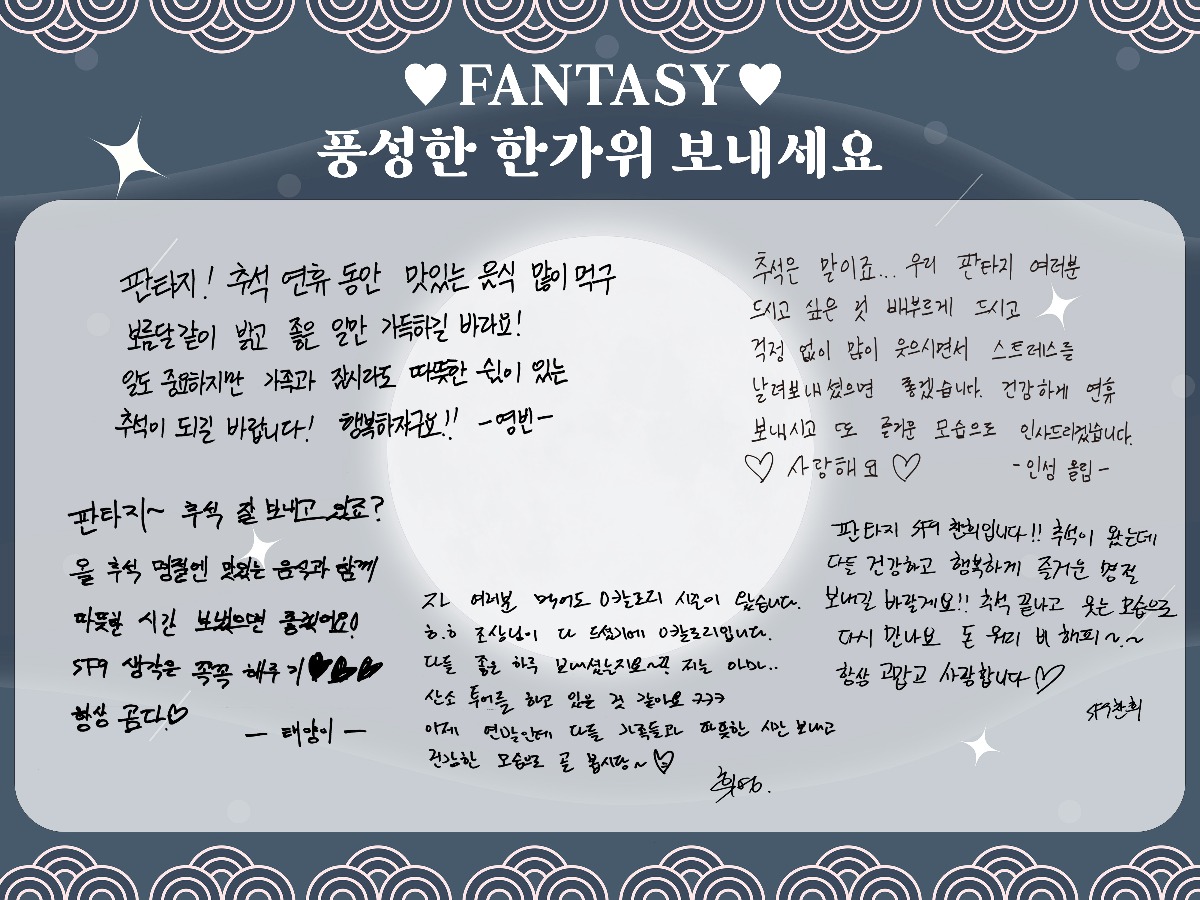 ♥FANTASY♥
풍성한 한가위 보내세요
판타지! 추석 연휴 동안 맛있는 음식 많이 먹구
보름달같이 밝고 좋은 일만 가득하길 바라요!
일도 중요하지만 가족과 잠시라도 따뜻한 쉼이 있는
추석이 되길 바랍니다! 행복하자구요!! -영빈-
추석은 말이죠... 우리 판타지 여러분
드시고 싶은 것 배부르게 드시고
걱정 없이 많이 웃으시면서 스트레스를
날려보내셨으면 좋겠습니다. 건강하게 연휴
보내시고 또 즐거운 모습으로 인사드리겠습니다.
♡ 사랑해요 ♡
-인성 올림-
판타지~ 추석 잘 보내고 있죠?
올 추석 명절엔 맛있는 음식과 함께
따뜻한 시간 보냈으면 좋겠어요!
SF9 생각은 꼭꼭 해주기♥♥♥
항상 곰다♡
- 태양이 -
자 여러분 먹어도 0칼로리 시즌이 왔습니다.
ㅎ.ㅎ 조상님이 다 드셨기에 0칼로리입니다.
다들 좋은 하루 보내셨는지요~? 저는 아마..
산소 투어를 하고 있을 것 같아요 ㅋㅋㅋ
이제 연말인데 다들 가족들과 따뜻한 시간 보내고
건강한 모습으로 곧 봅시당~♡
휘영.
판타지 SF9 찬희입니다!! 추석이 왔는데
다들 건강하고 행복하게 즐거운 명절
보내길 바랄게요!! 추석 끝나고 웃는 모습으로
다시 만나요 돈 워리 비 해피~.~
항상 고맙고 사랑합니다♡
SF9찬희